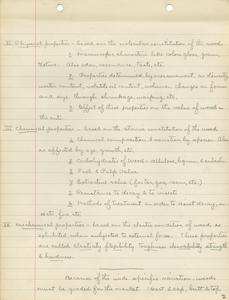 II Physical properties - based on the molecular constitution of the wood
1. Macroscopic characters like color, gloss, grain,
texture. Also odor, resonance, taste, etc.
2. Properties determined by measurement, as density,
water content, volatile oil content, volume, changes in form
and size, through shrinkage, warping, etc.
3. Effect of these properties on the value of wood in
the arts.
III Chemical properties - based on the atomic constitution of the wood
1. Chemical composition & variation by species. Also
as affected by age, growth, etc.
2. Carbohydrates of wood - cellulose, lignin, &
3. Fuel & Pulp Value
4. Extractive value (
5. Resistance to decay & to insects
6. Methods of treatment in order to resist decay, in-
sects, fire, etc.
IV Mechanical properties - based on the elastic condition of wood as
exhibited when subjected to external forces. These properties
are called elasticity flexibility toughness strength
& hardness.
Because of the wide specific variation, woods
must be graded for the market. Heart & sap, butt & top,